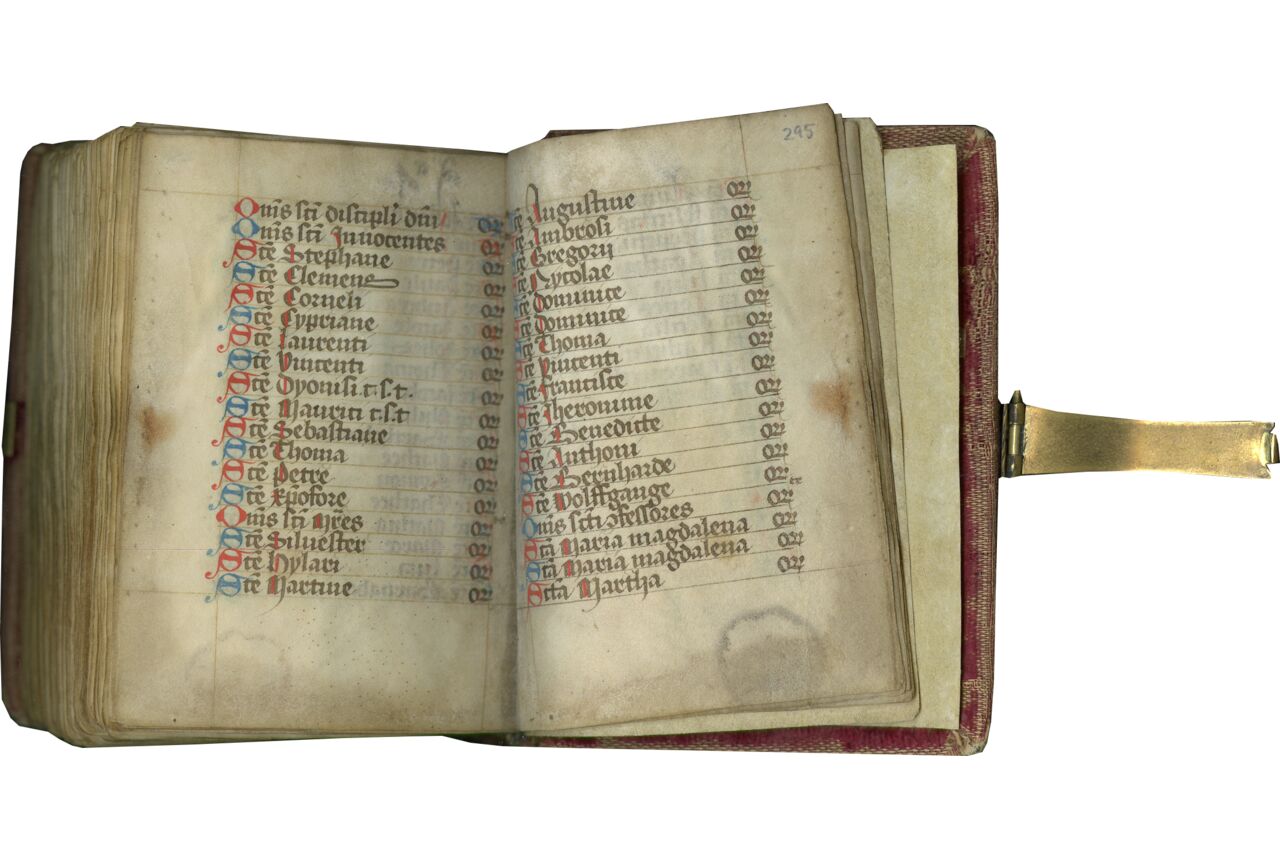 Om̅s sc̅i discipli dn̅i or
Om̅s sc̅i Innocentes or
Sc̅e Stephane or
Sc̅e Clemens or
Sc̅e Corneli or
Sc̅e Cypriane or
Sc̅e Laurenti or
Sc̅e Vincenti or
Sc̅e Dyonisi c.s.t. or
Sc̅e Mauriti c.s.t or
Sc̅e Sebastiane or
Sc̅e Thoma or
Sc̅e Petre or
Sc̅e xp̅ofore or
Om̅s sc̅i Mr̅es or
Sc̅e Siluester or
Sc̅e Hylari or
Sc̅e Martine or
295
Sc̅e Augustine or
Sc̅e Ambrosi or
Sc̅e Gregorii or
Sc̅e Nycolae or
Sc̅e Dominice or
Sc̅e Dominice or
Sc̅e Thoma or
Sc̅e Vincenti or
Sc̅e Francisce or
Sc̅e Iheronime or
Sc̅e Benedicte or
Sc̅e Anthoni or
Sc̅e Bernharde or
Sc̅e Wolffgange or
Om̅s sc̅ti ꝯfessores or
Sc̅a Maria magdalena or
Sc̅a Maria magdalena or
Sc̅ta Martha or